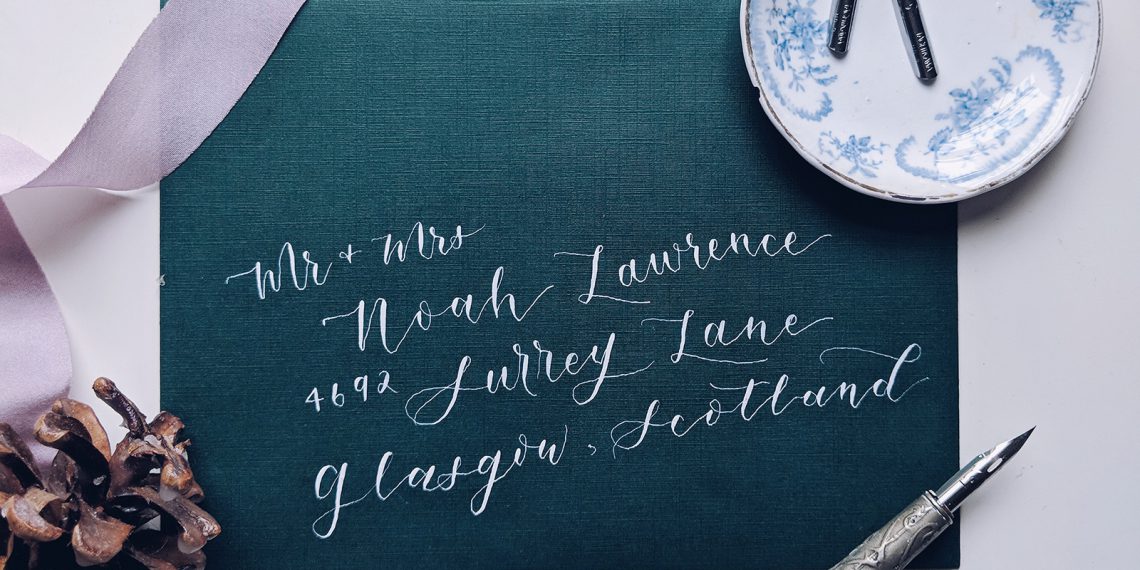 Mr + Mrs
Noah Lawrence
4692 Surrey Lane
Glasgow, Scotland